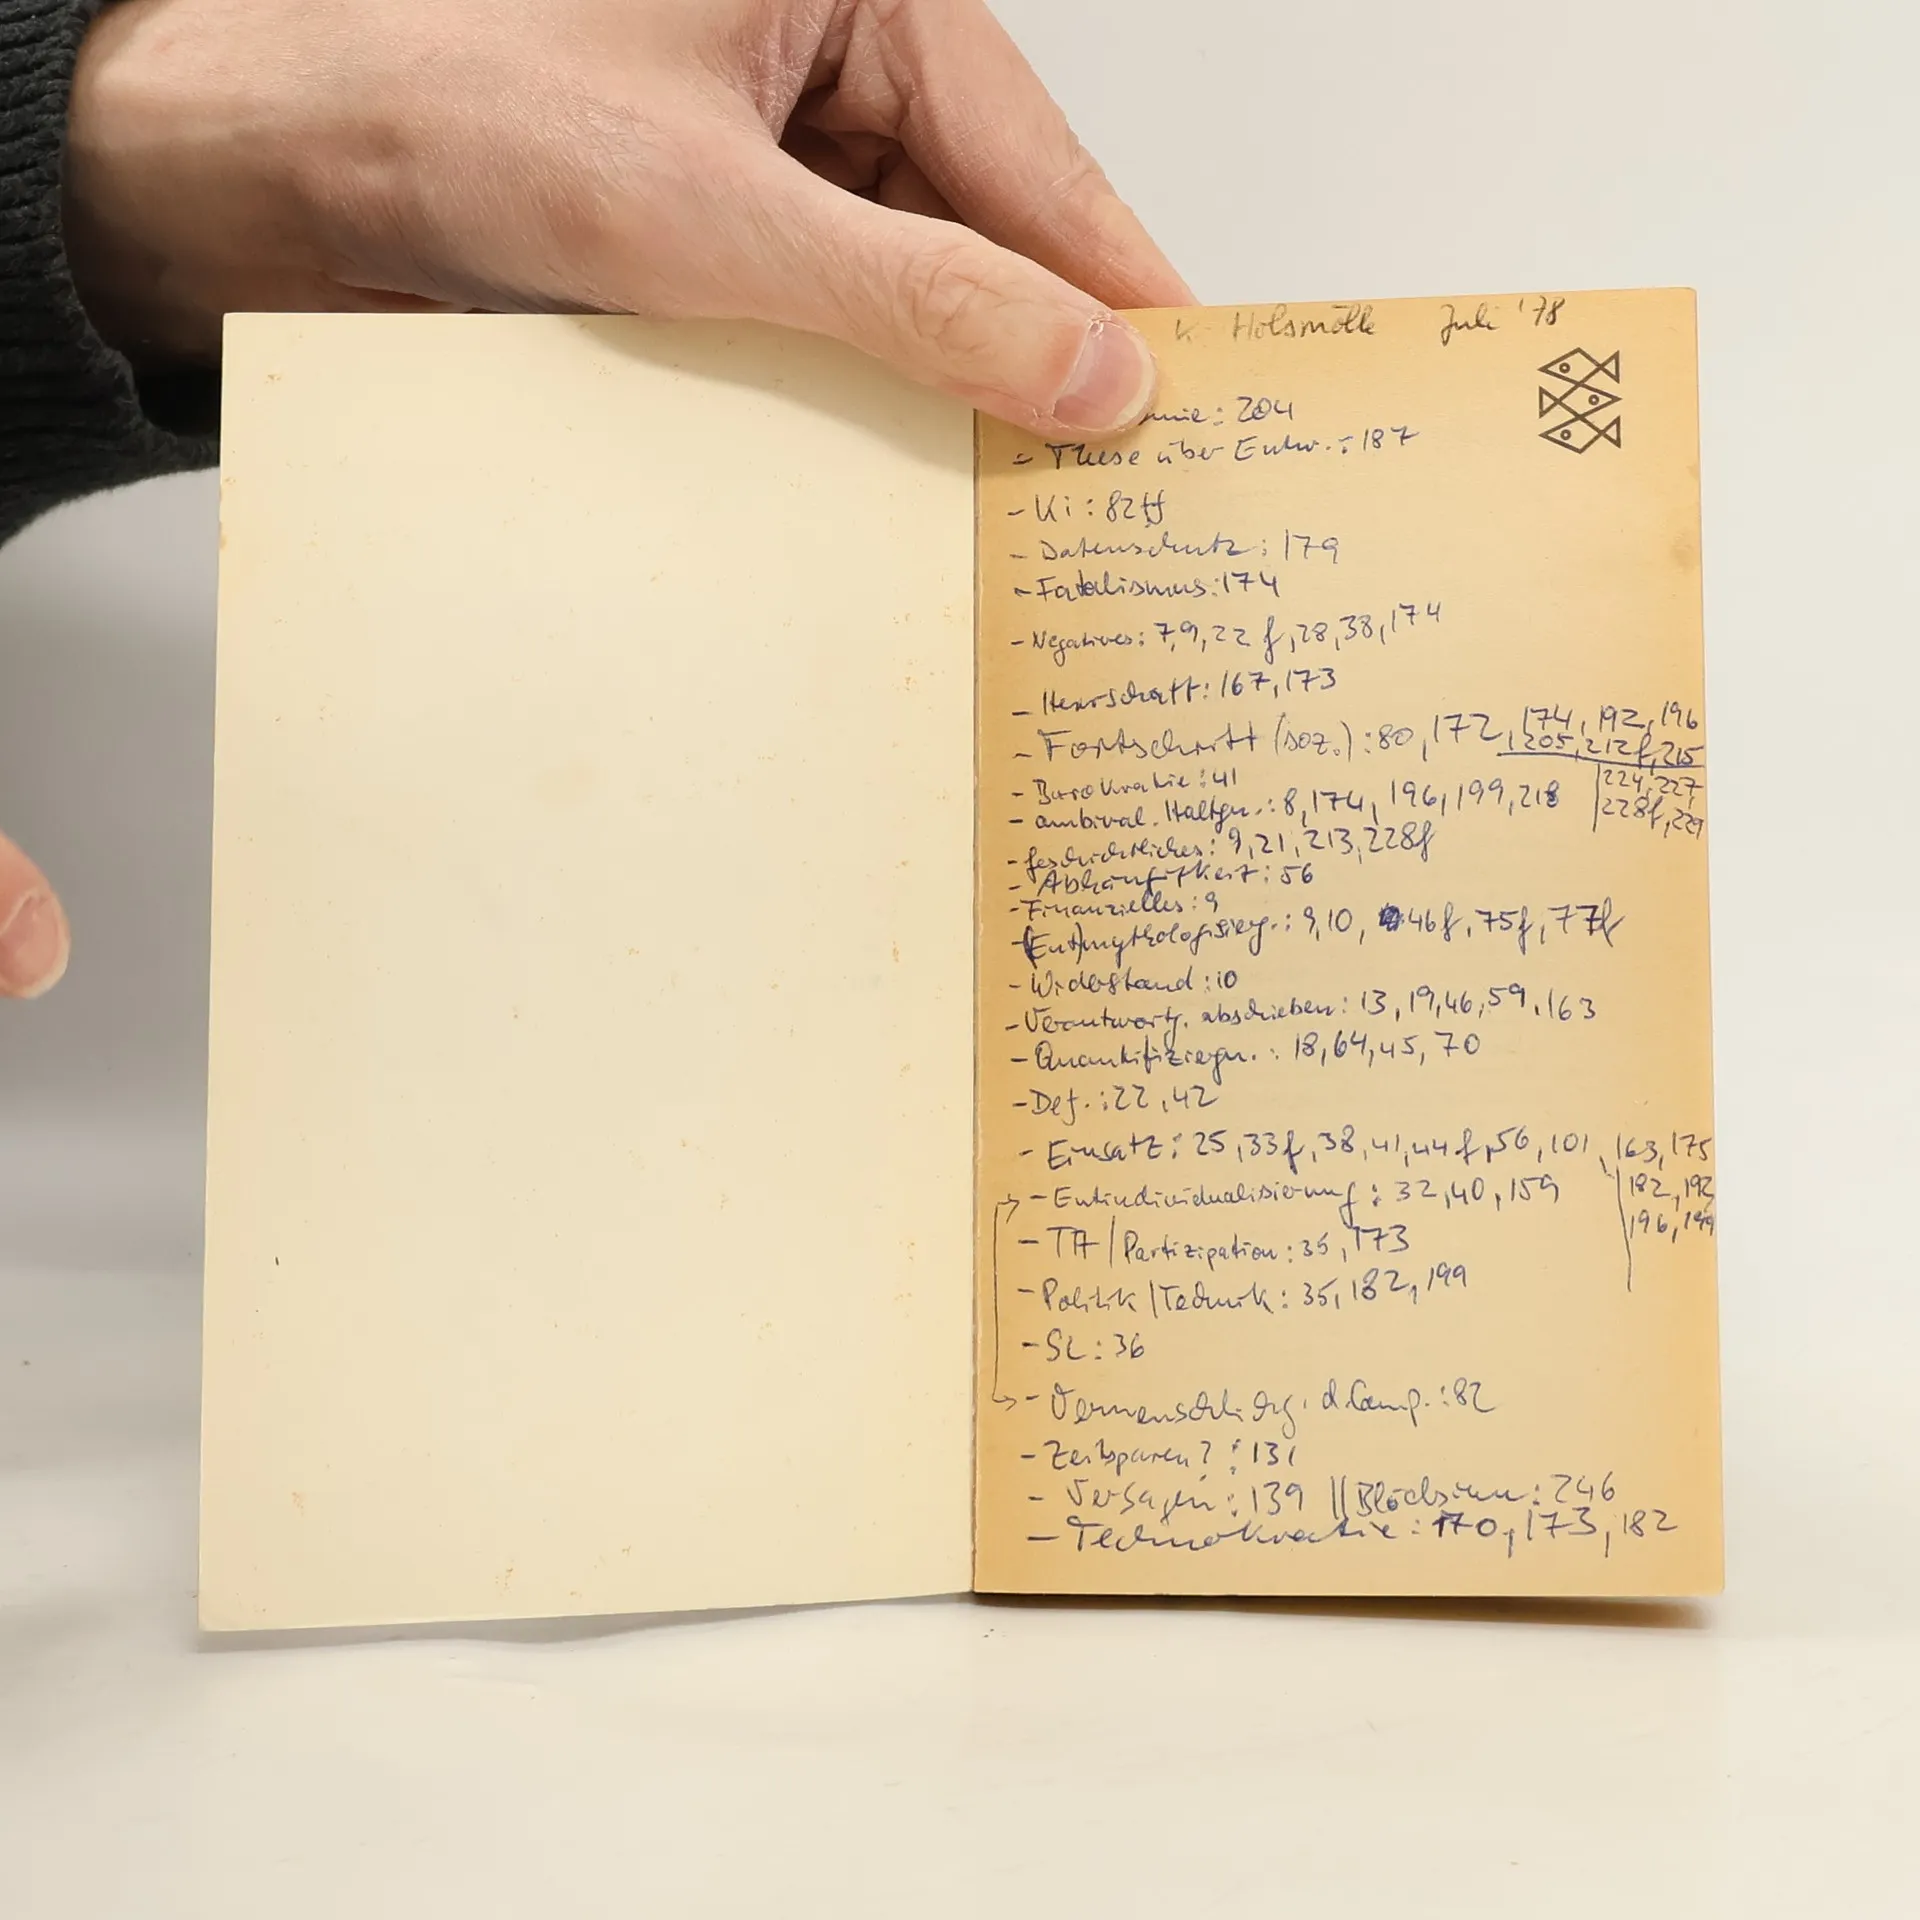 K. Holsmölle Juli '78
: 204
- These über Entw.: 187
- Ki: 82ff
- Datenschutz: 179
- Fatalismus: 174
- Negatives: 7,9,22 f,28,38,174
- Herrschaft: 167,173
- Fortschritt (soz.): 80,172,174,192,196
,205,212f,215
224,227,
228f,229
- Bürokratie: 41
- ambival. Haltgn.: 8,174,196,199,218
- geschichtliches: 9,21,213,228f
- Abhängigkeit: 56
- Finanzielles: 9
- (Ent)mythologisierg.: 9,10, 46f,75f,77f
- Widerstand: 10
- Verantwortg. abschieben: 13,19,46,59,163
- Quantifiziergn.: 18,64,45,70
- Def.: 22,42
- Einsatz: 25,33f,38,41,44f,56,101,163,175
182,192
196,199
- Entindividualisierung: 32,40,159
- TA/Partizipation: 35,173
- Politik/Technik: 35,182,199
- SL: 36
- Vermenschlichg. d. Comp.: 82
- Zeitsparen?: 131
- Versagen: 139 || Blödsinn: 246
- Technokratie: 170,173,182